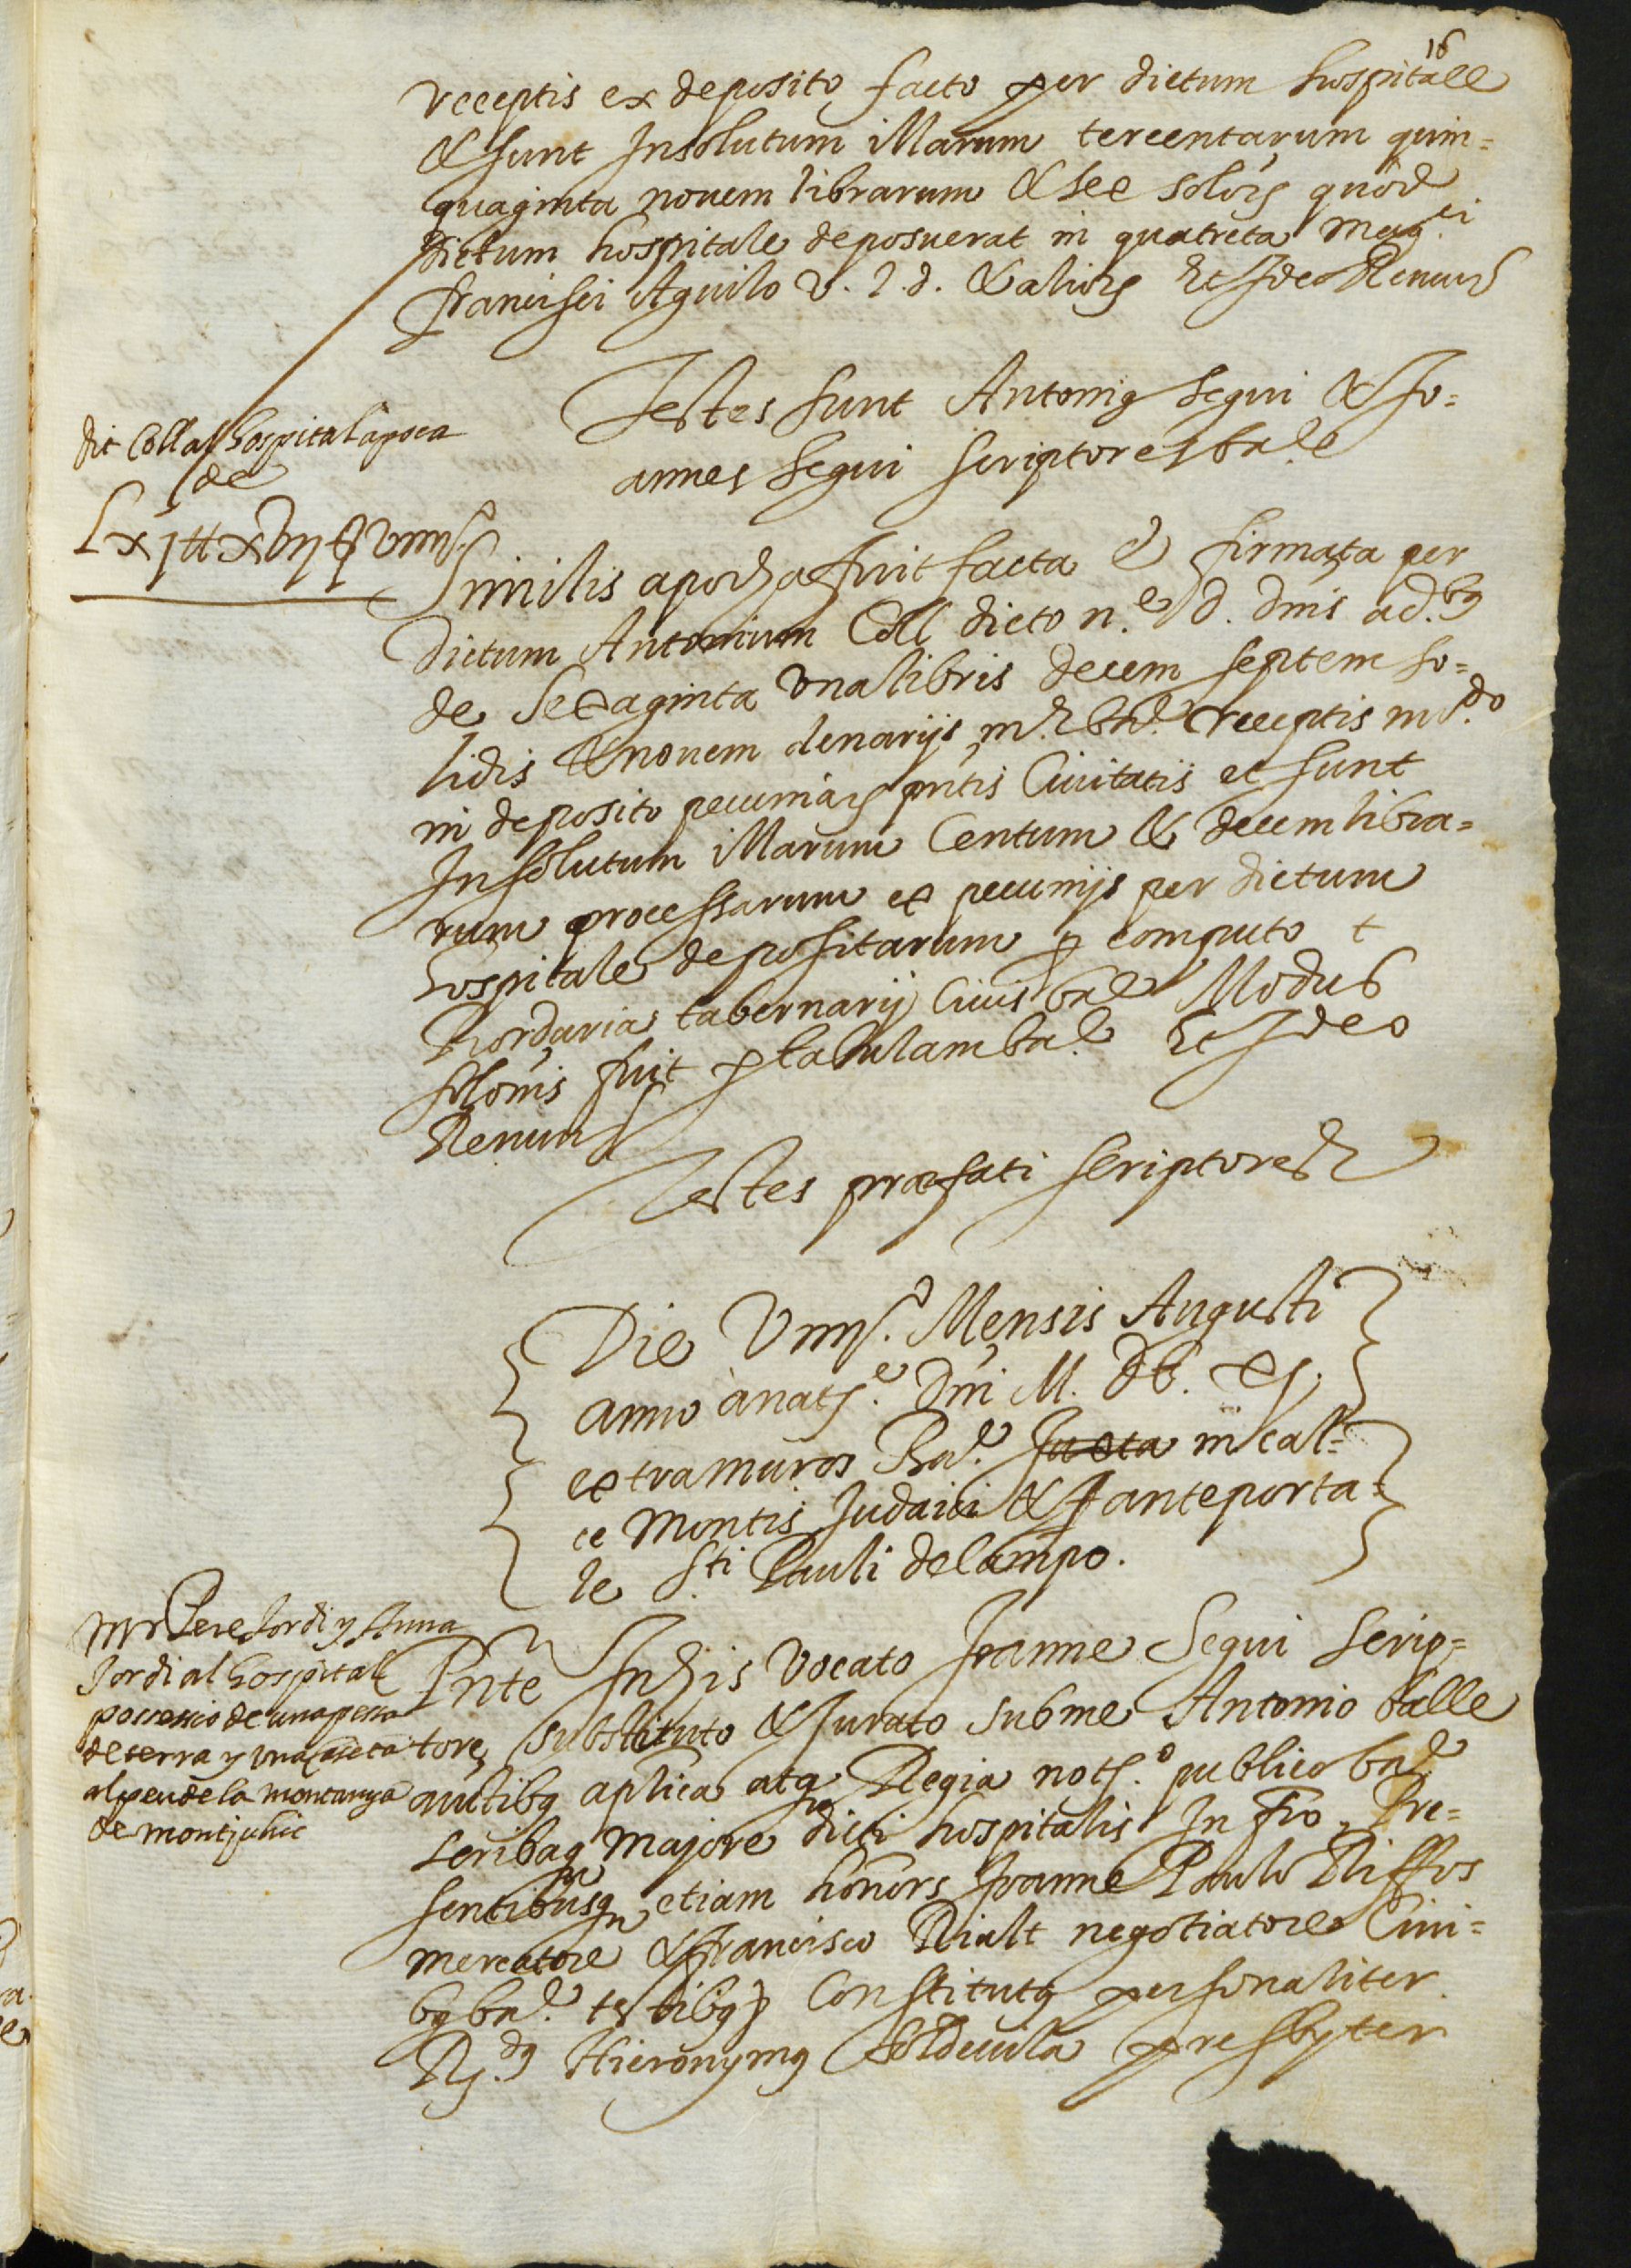 16
receptis ex deposito facto per dictum hospitale
& sunt Insolutum illarum tercentarum quin=
quaginta novem librarum & sex solors quod
dictum hospitale deposuerat in quatreta mag.ci
francisci Aguilo V. J. d. & aliors Et Ideo Renun
Testes sunt Antonig Segui & Jo=
annes Segui scriptores bar.e
dit Coll al hospital apoca
de
Lxj tt xvij ß viiij
Similis apocha fuit facta & firmata per
dictum Antonium Coll dicto n.e d. dnis ad.bg
de Sexaginta una libris decem septem so=
lidis & novem denarijs m.e bar.e receptis mo.do
in deposito pecuniars pntis Civitatis et sunt
Insolutum illarum Centum & decem libra=
rum processarum ex pecunijs per dictum
hospitale depositarum p computo t
Rorduria tabernarij Civis bar.e Modus
solonis fuit p tabulam bar.e Et Ideo
Renun
Testes præfati scriptores
Die Viiij. Mensis Augusti
anno a nat.e Dni M. D C. x
extra muros Bar.e Juxta in cal=
ce Montis Judaici & ante porta=
le S.ti Pauli del campo.
Mr Pere Jordi y Anna
Jordi al hospital
possessio de una pessa
de terra y una caseta
al peu de la montanya
de montjuhic
Pnte Inhis vocato Joanne Segui scrip=
tore, substituto & Jurato sub me Antonio Batlle
auctibg aplica atq Regia not.o publico bar.e
scribaq majore dicti hospitalis In fro, Pre=
sentibusq etiam honors Joanne Paulo Riffos
mercatore & francisco Rialt negotiatore Civi=
bg bar.e testibg Constitutg personaliter
R.dg Hieronymg Soldevila presbyter